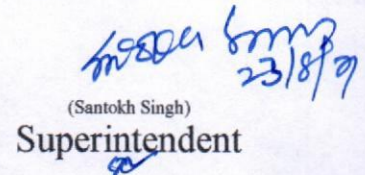 23/8/21
(Santokh Singh)
Superintendent